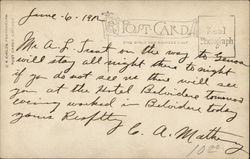 June 6. 190
POST CARD
Real
Photograph
Mr A. L. Trout on the way to Genoa
will stay all night there to night
if you do not see me there will see
you at the Hotel Belvidere tomorrow
evening worked in Belvidere today
yours Respttly
C. A. Mather